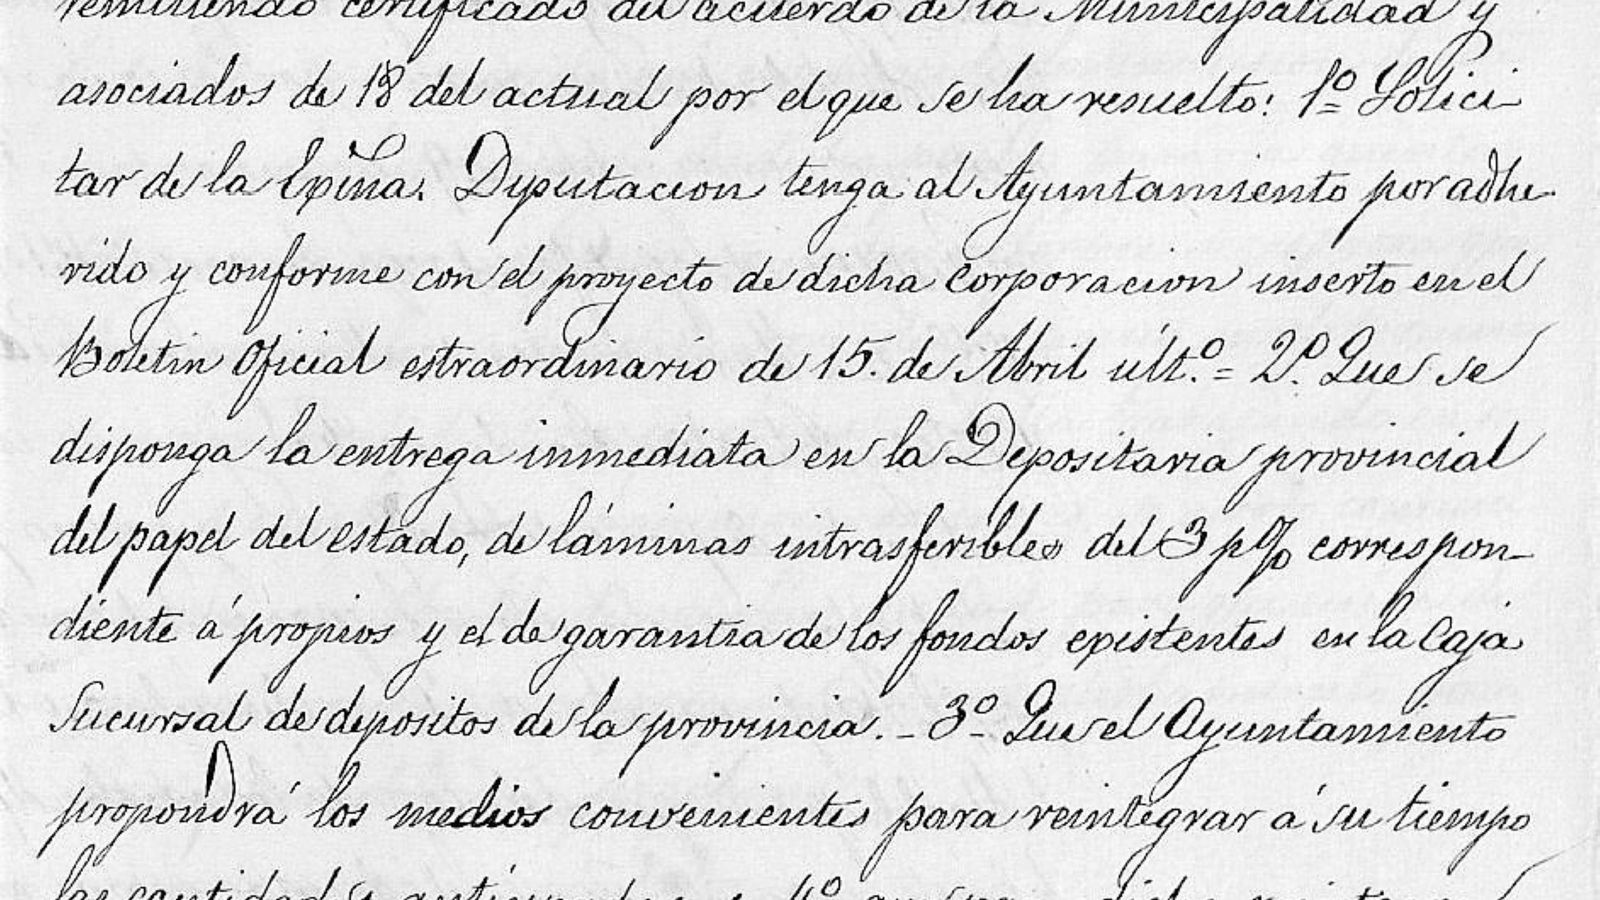 remitiendo certificado del acuerdo de la Municipalidad y
asociados de 18 del actual por el que se ha resuelto: 1º Solici-
tar de la Exma. Diputacion tenga al Ayuntamiento por adhe-
rido y conforme con el proyecto de dicha corporacion inserto en el
Boletin Oficial estraordinario de 15. de Abril últ.º = 2º. Que se
disponga la entrega inmediata en la Depositaria provincial
del papel del estado, de láminas intrasferibles del 3 p% correspon-
diente á propios y el de garantia de los fondos existentes en la Caja
Sucursal de depositos de la provincia. - 3º Que el Ayuntamiento
propondrá los medios convenientes para reintegrar á su tiempo
las cantidades 4º